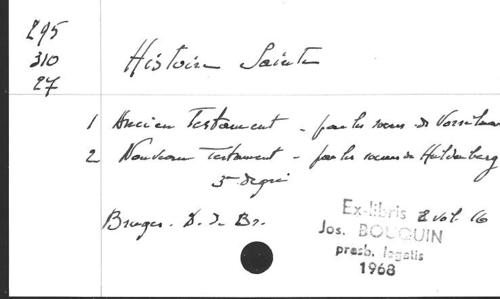 295
310
27
Histoire Sainte
1 Ancien Testament - par les soeurs de Vorselaar
2 Nouveau Testament - par les soeurs de Huldenberg
3e degré
Bruges. D. de Br. 2 vol. 16
Ex-libris
Jos. BOUQUIN
presb. legatis
1968